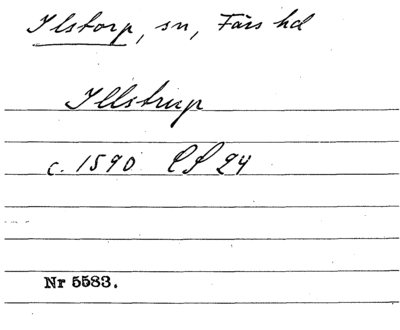 Ilstorp, sn, Färs hd
Illstrup
c. 1590 LS 24
Nr 5583.